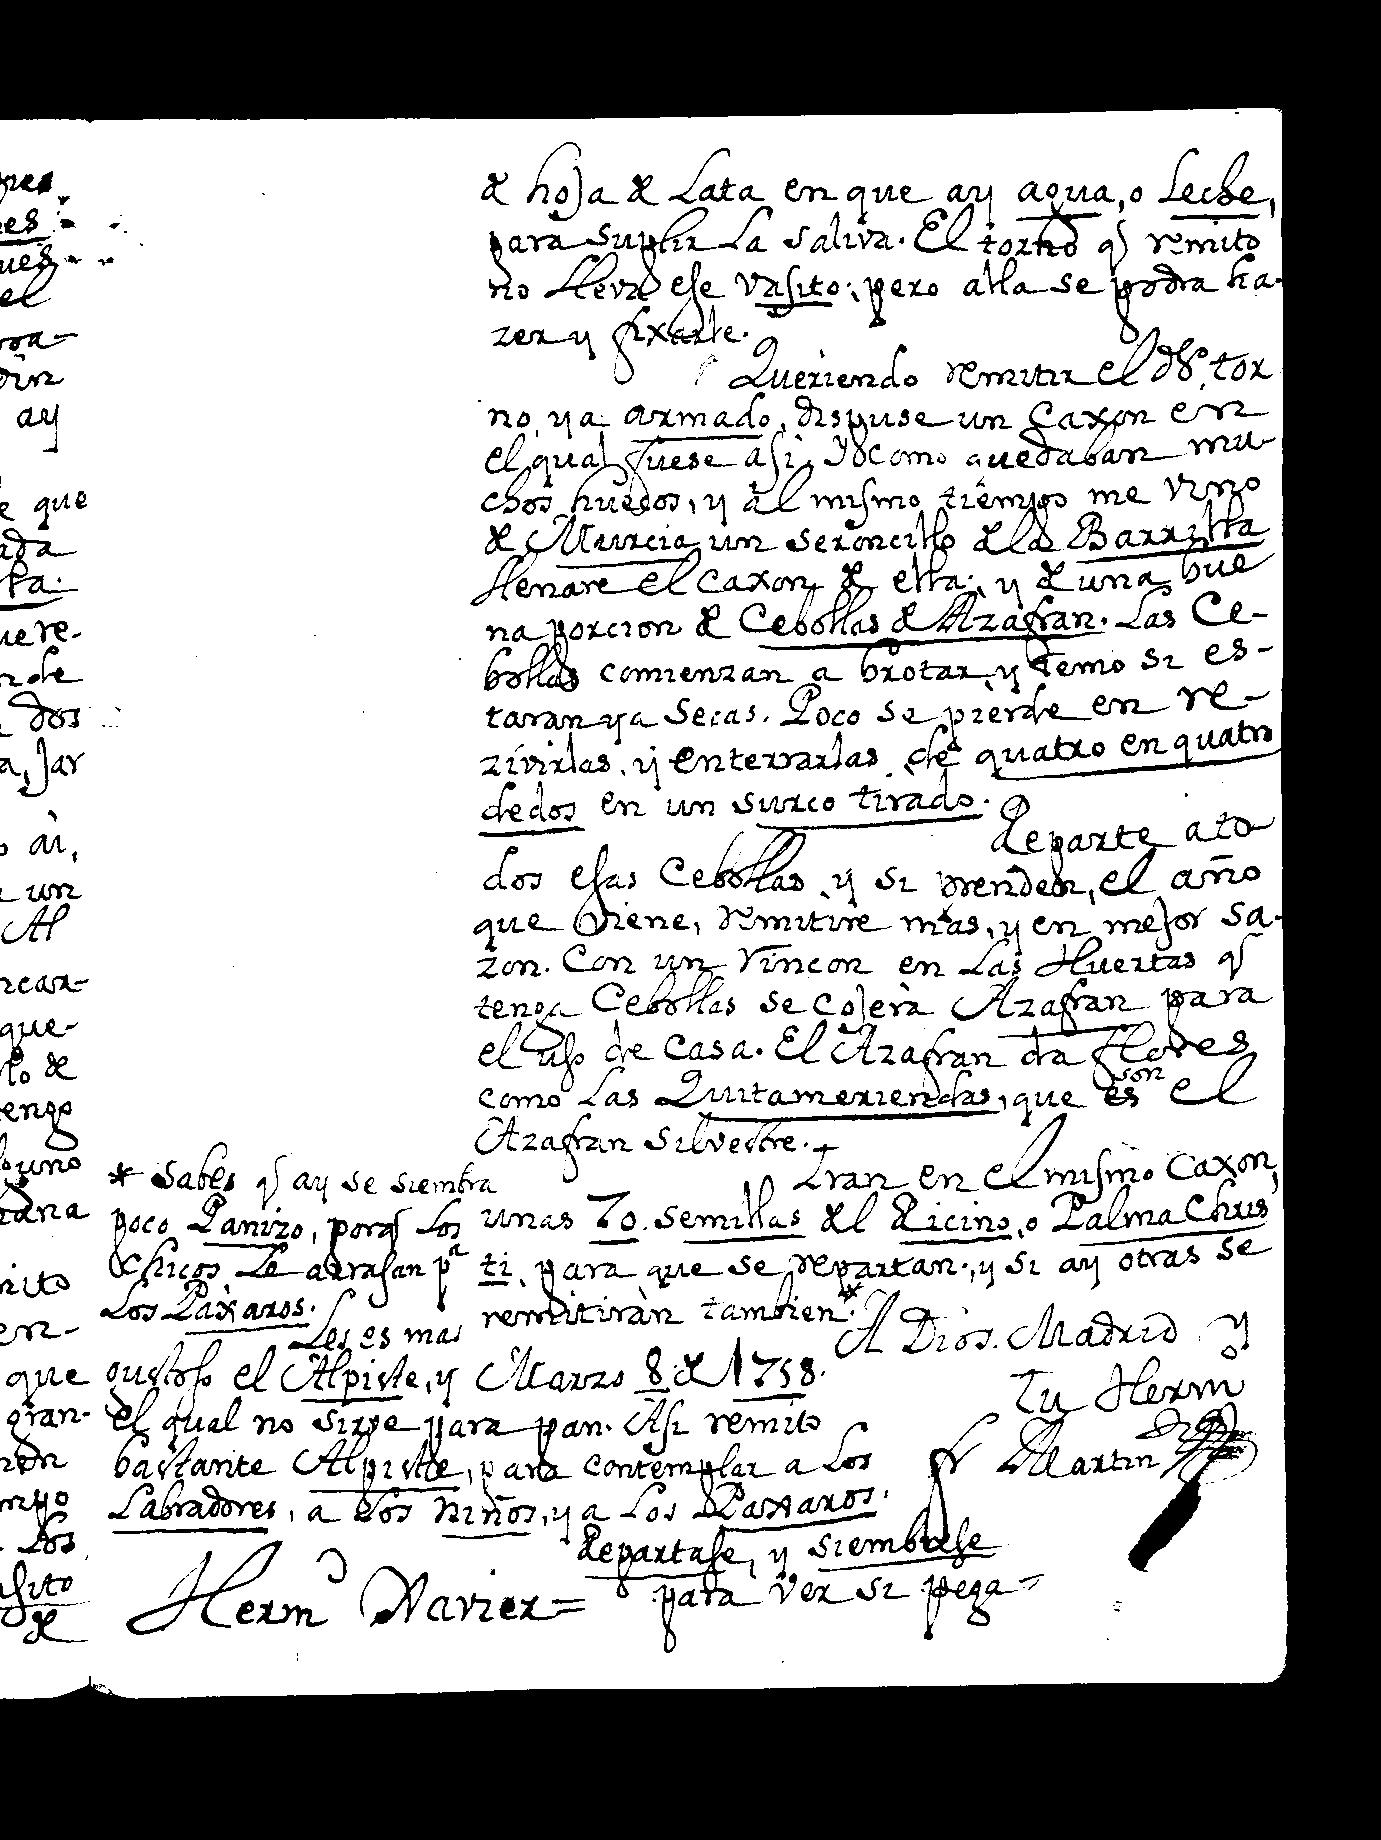 de hoja de Lata en que ay agua, o Leche,
para suplir La saliva. El torno q̃ remito
no lleva ese vasito; pero alla se podra ha-
zer y fixarle.
Queriendo remitir el dho. tor
no, ya armado, dispuse un Caxon en
el qual fuese asi, y como quedaban mu-
chos huecos, y al mismo tiempo me vino
de Murcia un seroncillo de la Barrilla
llenare el caxon de ella; y de una bue
na porcion de Cebollas de Azafran. Las Ce-
bollas comienzan a brotar, y temo si es-
taran ya secas. Poco se pierde en re-
zivirlas, y enterrarlas de quatro en quatro
dedos en un surco tirado.
Reparte a to
dos esas Cebollas, y si prenden, el año
que viene, remitire mas, y en mejor sa-
zon. Con un rincon en Las Huertas q̃
tenga Cebollas se cojerà Azafran para
el uso de casa. El Azafran da flores
como Las Quitameriendas, que es son el
Azafran silvestre. +
Iran en el mismo Caxon,
unas 70. semillas del Ricino, o Palma Chris
ti, para que se repartan, y si ay otras se
remitiràn tambien.* A Dios. Madrid y
Marzo 8 de 1758.
Tu Herm.º
fr Martin
* Sabes q̃ ay se siembra
poco Panizo, porq̃ Los
Chicos Le arrasan p.ª
Los Paxaros.
Les es mas
gustoso el Alpiste, y
el qual no sirve para pan. Asi remito
bastante Alpiste, para contemplar a Los
Labradores, a Los Niños, y a Los Paxaros.
Repartase, y siembrese
para ver si pega-
Herm.º Xavier=